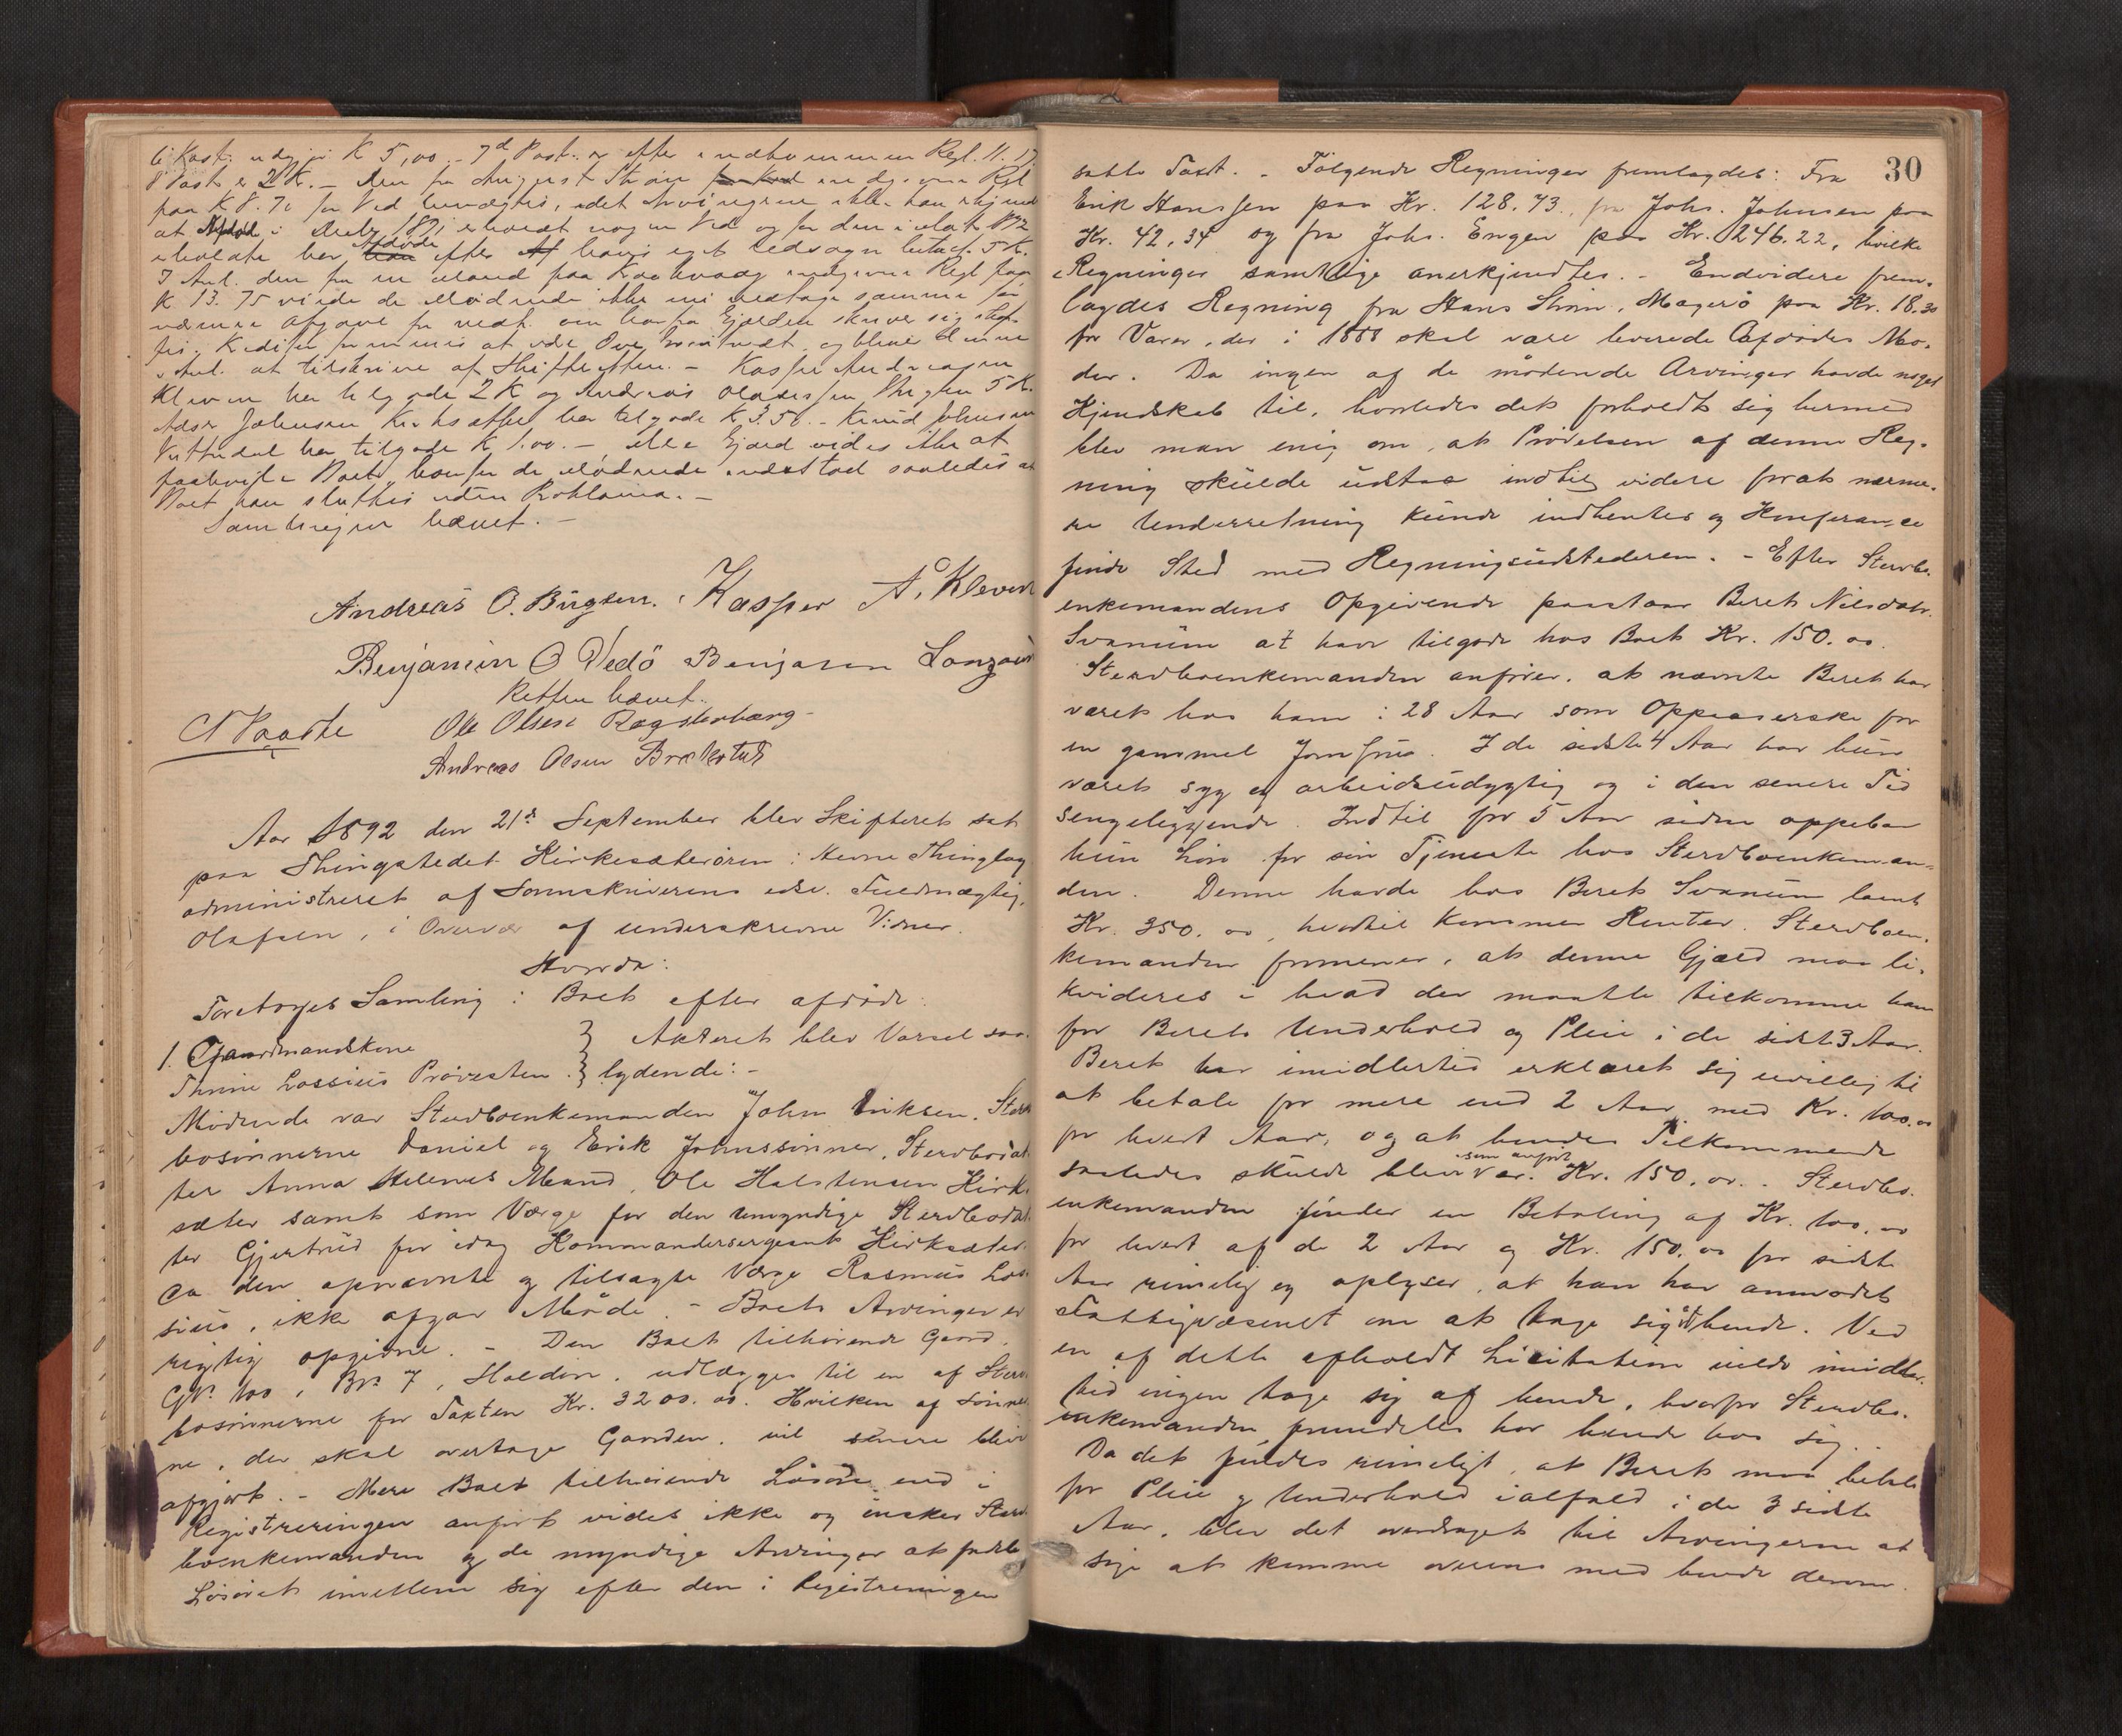 6 Post: udgjør K 5,00. - 7d Post: er efter Regl. 11.17
8 Post er 2 K. - Den fra August Strøm Regl
paa K 8.70 for Ved benægtes, idet Arvingerne ikke kan skjønne
at i 1891 erholdt nogen Ved og for den i 1892
erholdte har Afdøde efter hans eget Udsagn betalt 5 K.
I Anl. den fra paa Regl paa
K 13.75 vilde de Mødende ikke samme før
nærmere Opgave
og bliver denne
i Anl. at tilskrive af Skifteretten. - Kasper Andreasen
Kleven har tilgode 2 K og Andreas Olavessen 5 K.
Johnsen har tilgode K 3.50. - Knud Johnsen
har tilgode K 1.00. - Mere Gjæld vides ikke at
paahvile Boet, hvorfor de Mødende saaledes at
Boet kan sluttes uden Proklama. -
Samlingen hævet. -
Andreas O. Bügten. Kasper A. Kleven
Benjamin O Vedö Benjamin
Retten hævet.
Ole Olsen
Andreas Olsen
Aar 1892 den 21de September blev Skifteret sat
paa Thingstedet Kirkesæterøren i Hevne Thinglag
administreret af Sorenskriverens edsv. Fuldmægtig,
Olafsen, i Overvær af underskrevne Vidner.
Hvorda:
Foretoges Samling i Boet efter afdøde:
1. Gaardmandskone } Akteret blev Varsel saa-
Lossius Prøvesten. } lydende: -
Mødende var Stervboenkemanden John Eriksen, Sterv-
bosønnerne Daniel og Erik Johnssønner, Stervbodat-
ter Anna Helenes Mand, Ole Halstensen Kirk-
sæter samt som Værge for den umyndige Stervbodat-
ter Gjertrud for idag Kommandersergeant Kirksæter
da den opnævnte og tilsagte Værge Rasmus Los-
sius, ikke afgav Møde. - Boets Arvinger er
rigtig opgivne. - Den Boet tilhørende Gaard,
GN. 100, BN. 7, Haldin, udlægges til en af Sterv-
bosønnerne for Taxten Kr. 3200.00. Hvilken af Sønner-
ne, der skal overtage Gaarden, vil senere blive
afgjort. - Mere Boet tilhørende Løsøre end i
Registreringen anført vides ikke og ønsker Sterv-
boenkemanden og de myndige Arvinger at fordele
Løsøret imellem sig efter den i Registreringen
30
satte Taxt. - Følgende Regninger fremlagdes: Fra
Erik Hanssen paa Kr. 128.73, fra Johs. Johnsen paa
Kr. 42,34 og fra Johs. Engen paa Kr. 246.22, hvilke
Regninger samtlige anerkjendtes. - Endvidere frem-
lagdes Regning fra Hans Strøm, Magerö paa Kr. 18.30
for Varer, der i 1888 skal være leverede Afdødes Mo-
der. Da ingen af de mødende Arvinger havde noget
Kjendskab til, hvorledes det forholdt sig hermed
blev man enig om, at Prøvelsen af denne Reg-
ning skulde udstaa indtil videre forat nærme-
re Underretning kunde indhentes og Konferance
finde Sted med Regningsudstederen. - Efter Stervbo-
enkemandens Opgivende paastaar Beret Nilsdatr.
Svanum at have tilgode hos Boet Kr. 150.00.
Stervboenkemanden anfører, at nævnte Beret har
været hos ham i 28 Aar som Oppasserske for
en gammel Jomfru. I de sidste 4 Aar har hun
været syg og arbeidsudygtig og i den senere Tid
sengeliggende. Indtil for 5 Aar siden oppebar
hun Løn for sin Tjeneste hos Stervboenkeman-
den. Denne havde hos Beret Svanum laant
Kr. 350.00, hvortil kommer Renter. Stervboen-
kemanden formener, at denne Gjæld maa li-
kvideres i hvad der maatte tilkomme ham
for Berets Underhold og Pleie i de sidste 3 Aar.
Beret har imidlertid erklæret sig uvillig til
at betale for mere end 2 Aar med Kr. 100.00
for hvert Aar, og at hendes Tilkommende
saaledes skulde blive som anført var Kr. 150.00. - Stervbo-
enkemanden finder en Betaling af Kr. 100.00
for hvert af de 2 Aar og Kr. 150.00 for sidste
Aar rimelig og oplyser, at han har anmodet
Fattigvæsenet om at tage sig af hende. Ved
en af dette afholdt Licitation vilde imidler-
tid ingen tage sig af hende, hvorfor Stervbo-
enkemanden fremdeles har hende hos sig.
Da det findes rimeligt, at Beret maa betale
for Pleie og Underhold ialfald i de 3 sidste
Aar, blev det overdraget til Arvingerne at
søge at komme overens med hende derom.